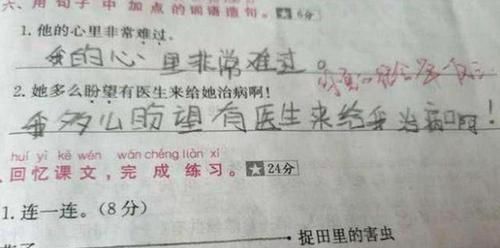 六、用句子中加点的词语造句。★6分
1. 他的心里非常难过。
我的心里非常难过。
2. 她多么盼望有医生来给她治病啊!
我多么盼望有医生来给我治病啊!
huí yì kè wén wán chéng liàn xí
回忆课文,完成练习。★24分
1. 连一连。(8分)
捉田里的害虫